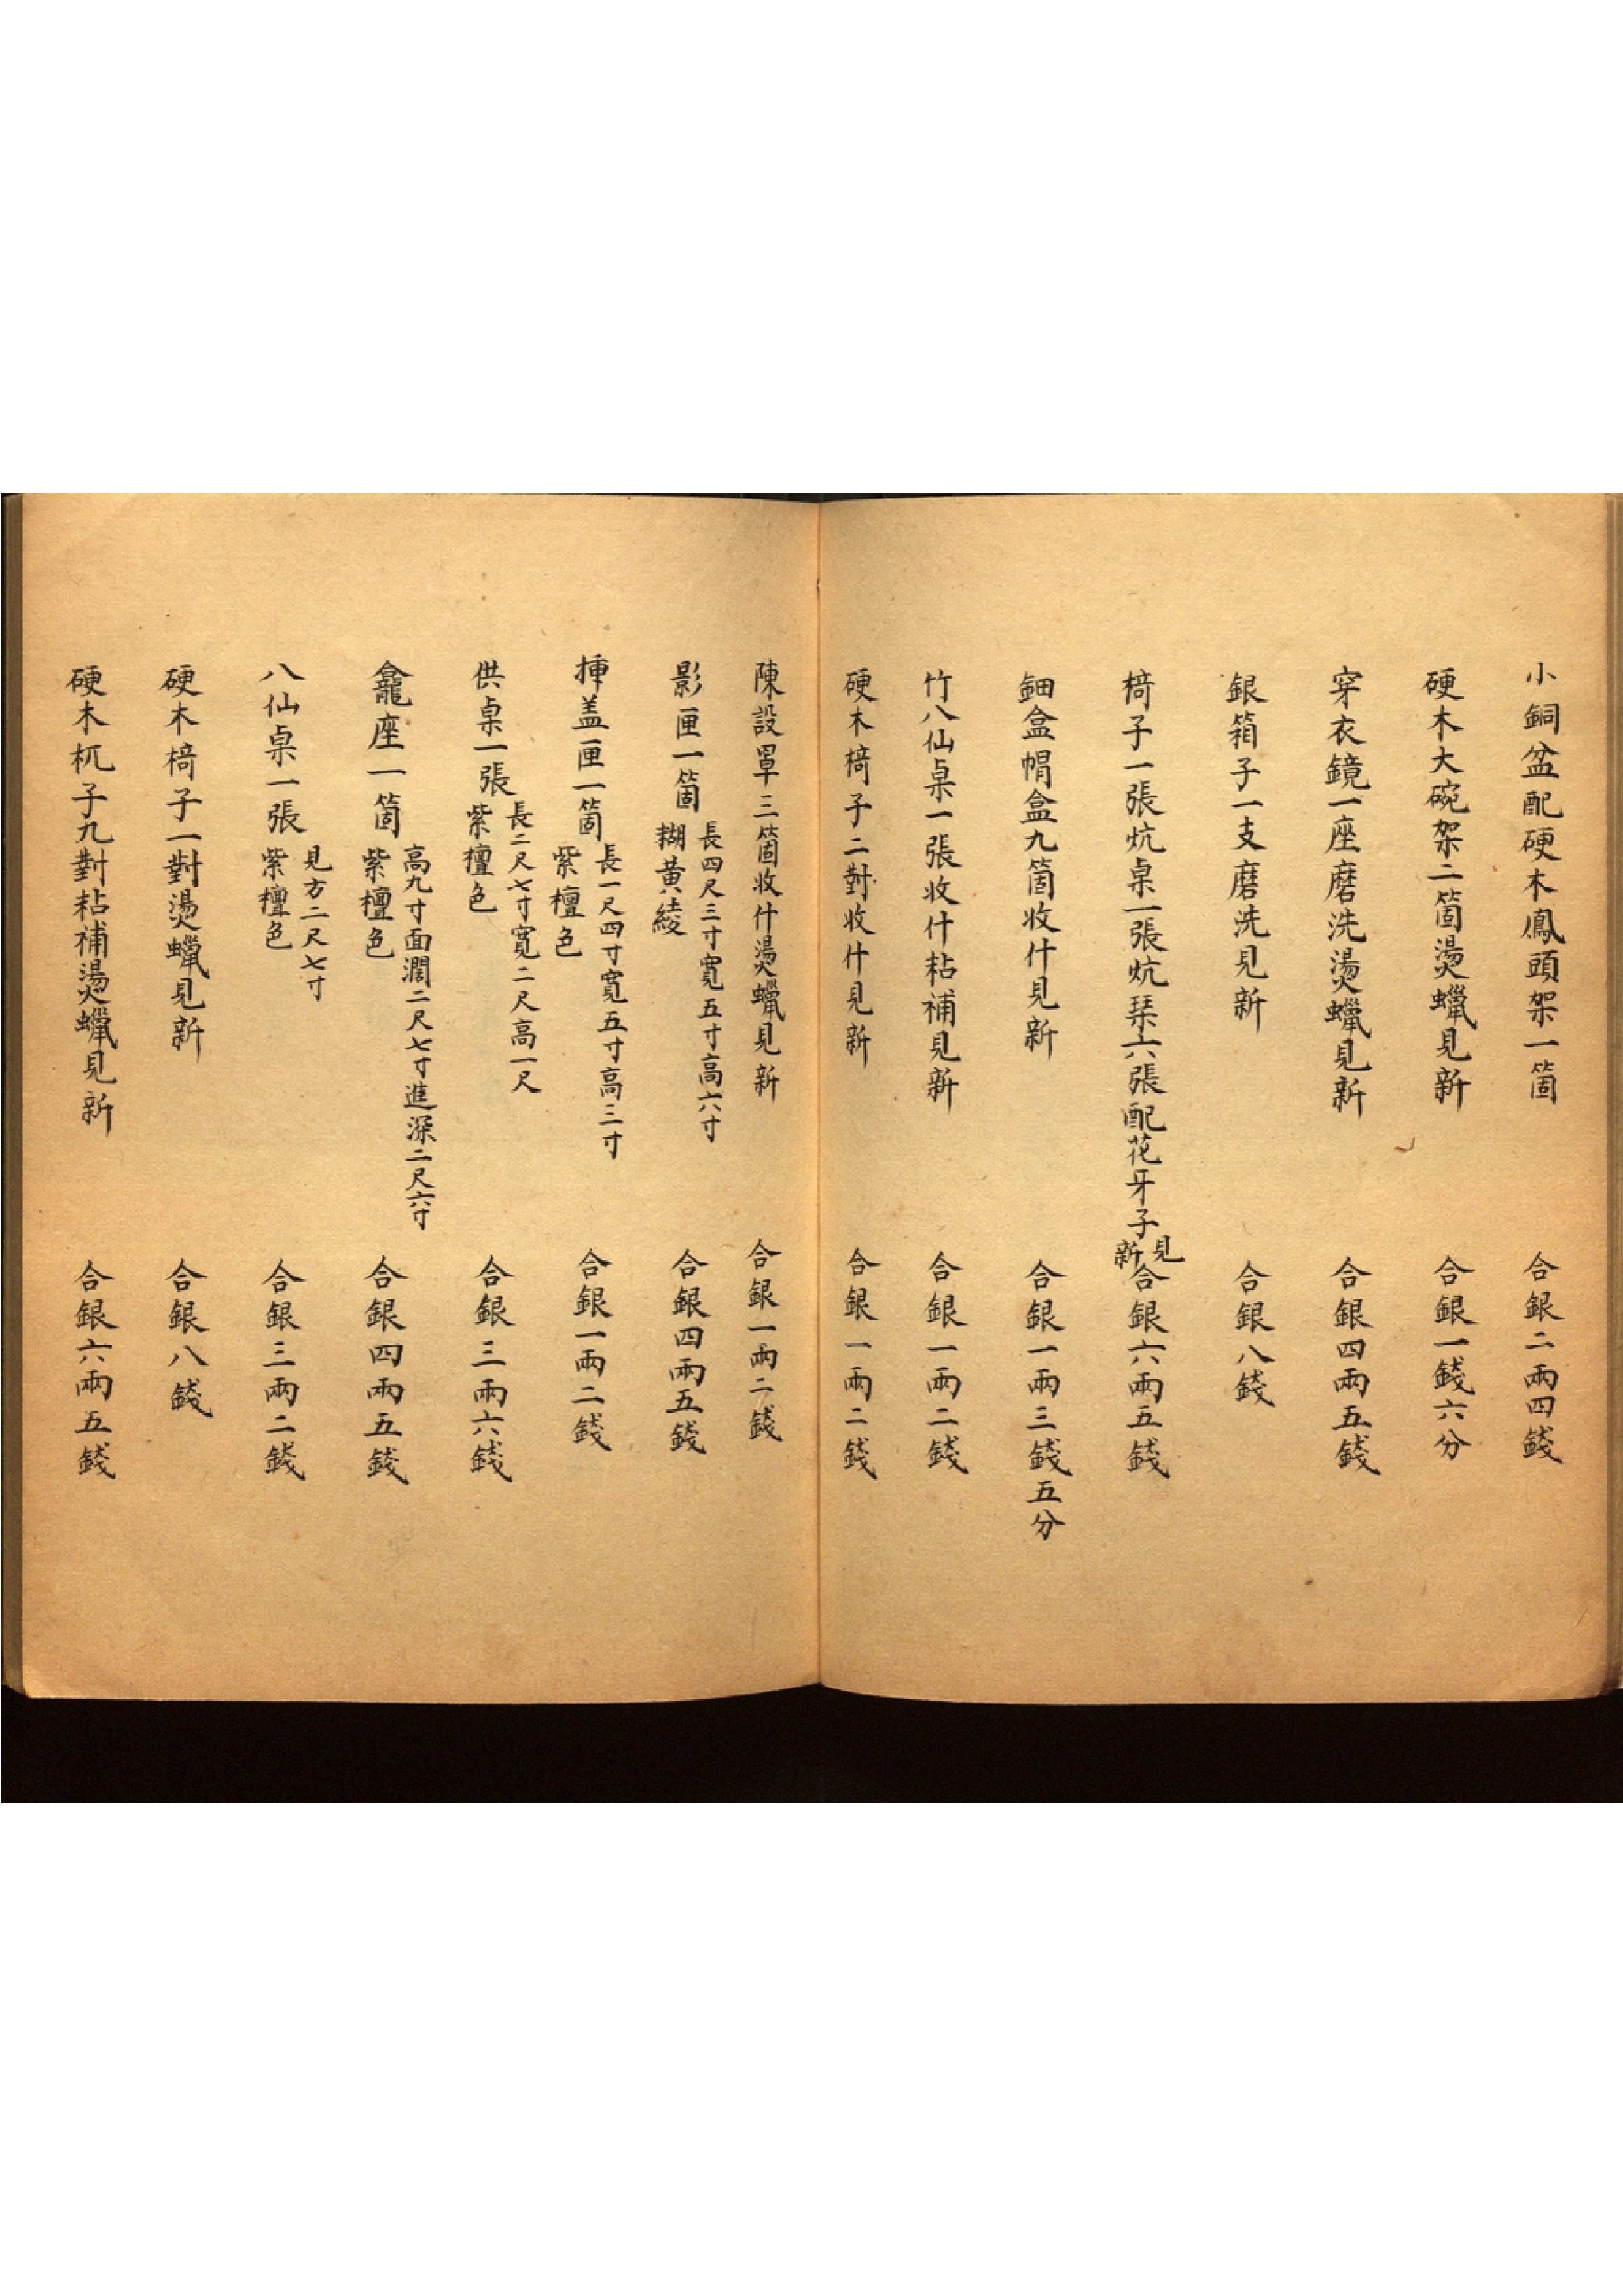 小銅盆配硬木鳳頭架一箇 合銀二兩四錢
硬木大碗架二箇燙蠟見新 合銀一錢六分
穿衣鏡一座磨洗燙蠟見新 合銀四兩五錢
銀箱子一支磨洗見新 合銀八錢
椅子一張炕桌一張炕琹六張配花牙子見新 合銀六兩五錢
鈿盒帽盒九箇收什見新 合銀一兩三錢五分
竹八仙桌一張收什粘補見新 合銀一兩二錢
硬木椅子二對收什見新 合銀一兩二錢
陳設罩三箇收什燙蠟見新 合銀一兩二錢
影匣一箇 長四尺三寸寬五寸高六寸 糊黄綾 合銀四兩五錢
揷盖匣一箇 長一尺四寸寬五寸高三寸 紫檀色 合銀一兩二錢
供桌一張 長二尺七寸寬二尺高一尺 紫檀色 合銀三兩六錢
龕座一箇 高九寸面濶二尺七寸進深二尺六寸 紫檀色 合銀四兩五錢
八仙桌一張 見方二尺七寸 紫檀色 合銀三兩二錢
硬木椅子一對燙蠟見新 合銀八錢
硬木杌子九對粘補燙蠟見新 合銀六兩五錢